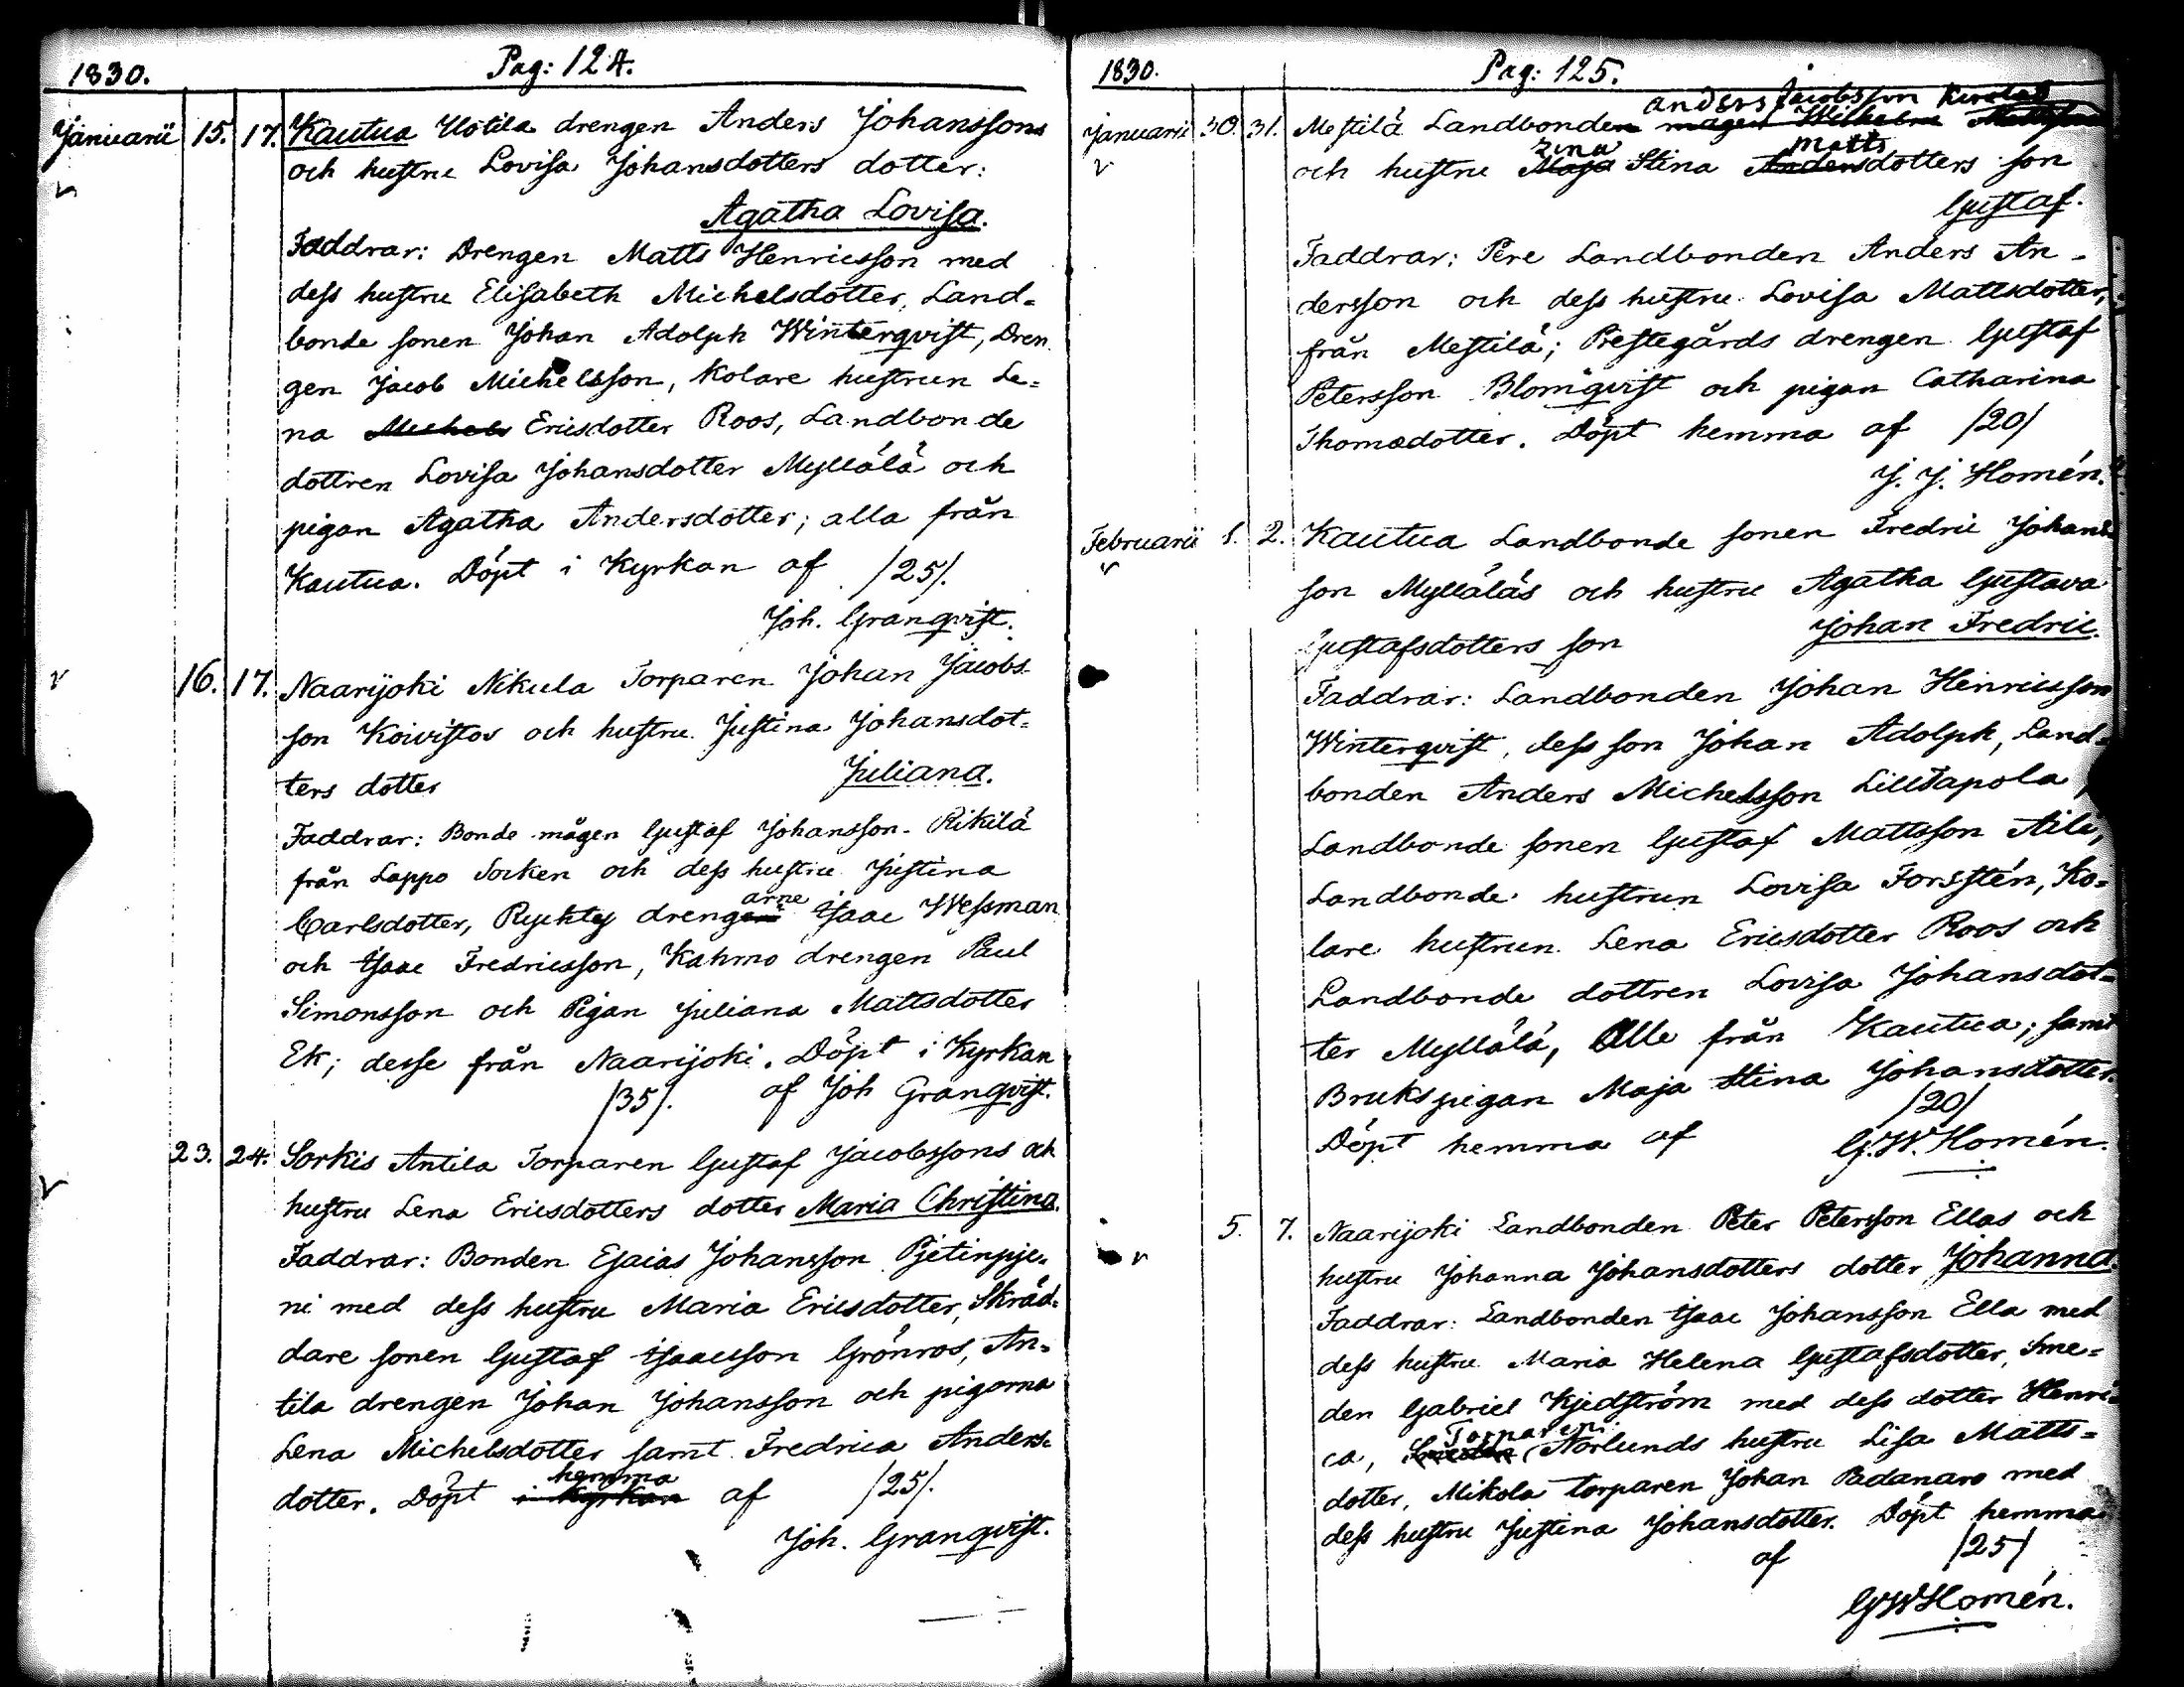 1830.
Pag: 124.
Januarii 15. 17. Kautua Uotila drengen Anders Johanssons
och hustru Lovisa Johansdotters dotter:
Agatha Lovisa.
Faddrar: Drengen Matts Henricsson med
dess hustru Elisabeth Michelsdotter, Land=
bonde sonen Johan Adolph Winterqvist, Dren
gen Jacob Michelsson, Kolare hustrun Le=
na Michels Ericsdotter Roos, Landbonde
dottren Lovisa Johansdotter Myllälä och
pigan Agatha Andersdotter; alla från
Kautua. Döpt i Kyrkan af /25/.
Joh. Granqvist.
16. 17. Naarijoki Nikula Torparen Johan Jacobs-
son Koivistos och hustru Justina Johansdot=
ters dotter Juliana.
Faddrar: Bonde mågen Gustaf Johansson Rikilä
från Lappo Socken och dess hustru Justina
arne
Carlsdotter, Ryckty drengen Isaac Wessman
och Isaac Fredricsson, Kahmo drengen Paul
Simonsson och Pigan Juliana Mattsdotter
Ek; desse från Naarijoki. Döpt i Kyrkan
/35/. af Joh Granqvist.
23. 24. Sorkis Antila Torparen Gustaf Jacobssons och
hustru Lena Ericsdotters dotter Maria Christina.
Faddrar: Bonden Esaias Johansson Pjetinpje=
ni med dess hustru Maria Ericsdotter, Skräd=
dare sonen Gustaf Isaacsson Grönroos, An=
tila drengen Johan Johansson och pigorna
Lena Michelsdotter samt Fredrica Anders=
hemma
dotter. Döpt i Kyrkan af /25/.
Joh. Granqvist.
1830.
Pag: 125.
anders Jacobsson
Januarii 30. 31. Mestilä Landbonden mågen Wilhelm
Matts
och hustru Maja Stina Andersdotters son
Gustaf.
Faddrar: Pere Landbonden Anders An=
dersson och dess hustru Lovisa Mattsdotter,
från Mestilä; Prestegårds drengen Gustaf
Petersson Blomqvist och pigan Catharina
Thomasdotter. Döpt hemma af /20/
J. J. Homén.
Februarii 1. 2. Kautua Landbonde sonen Fredric Johans
son Mylläläs och hustru Agatha Gustava
Gustafsdotters son Johan Fredric.
Faddrar: Landbonden Johan Henricsson
Winterqvist, dess son Johan Adolph, Land=
bonden Anders Michelsson Lilltapola,
Landbonde sonen Gustaf Mattsson Aila,
Landbonde hustrun Lovisa Forsstén, Ko=
lare hustrun Lena Ericsdotter Roos och
Landbonde dottren Lovisa Johansdot=
ter Myllälä, Alle från Kautua; samt
Brukspigan Maja Stina Johansdotter.
/20/
Döpt hemma af G.W. Homén.
5. 7. Naarijoki Landbonden Peter Petersson Ellas och
hustru Johanna Johansdotters dotter Johanna.
Faddrar: Landbonden Isaac Johansson Ella med
dess hustru Maria Helena Gustafsdotter, Sme=
den Gabriel Kjedström med dess dotter Henri=
Torparens
ca, Norlunds hustru Lisa Matts=
dotter, Mikola torparen Johan Padanaro med
dess hustru Justina Johansdotter. Döpt hemma
af /25/
GWHomén.